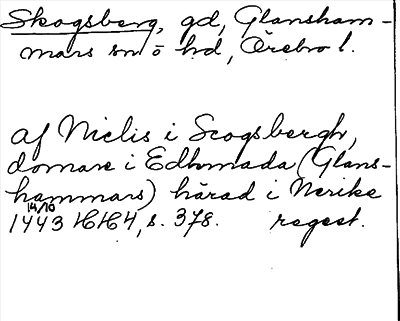 Skogsberg, gd, Glansham-
mars sn o hd, Örebro l.
af Nielis i Scogsbergh,
domare i Edhmada (Glans-
hammars) härad i Nerike
14/10
1443 HH4, s. 378. regest.